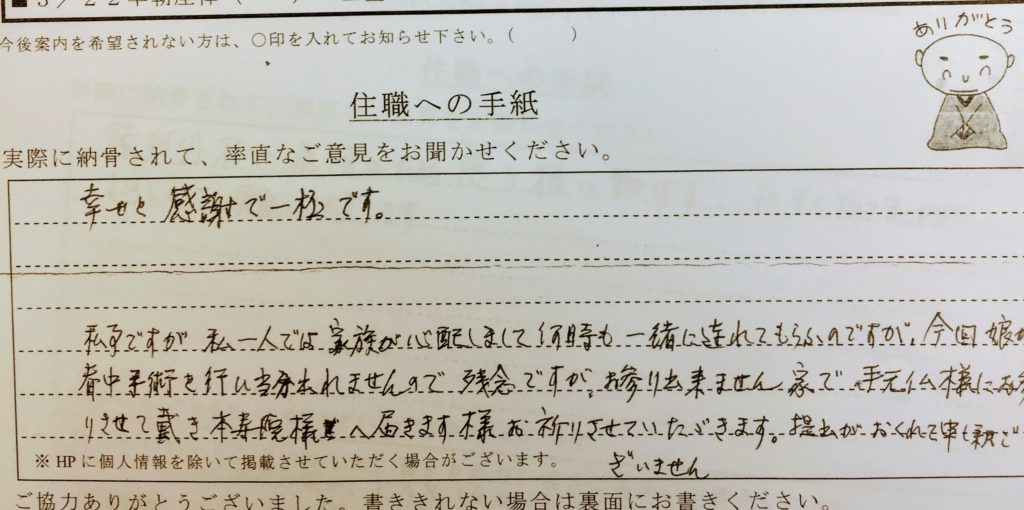 ありがとう
今後案内を希望されない方は、○印を入れてお知らせ下さい。( )
住職への手紙
実際に納骨されて、率直なご意見をお聞かせください。
幸せと感謝で一極です。
私事ですが私一人では家族が心配しまして何時も一緒に連れてもらふのですが、今回娘が
背中手術を行い当分出れませんので残念ですが、お参り出来ません家で手元仏様にお参
りさせて戴き本寿院様へ届きます様お祈りさせていただきます。提出がおくれて申し訳ご
ざいません
※HPに個人情報を除いて掲載させていただく場合がございます。
ご協力ありがとうございました。書ききれない場合は裏面にお書きください。